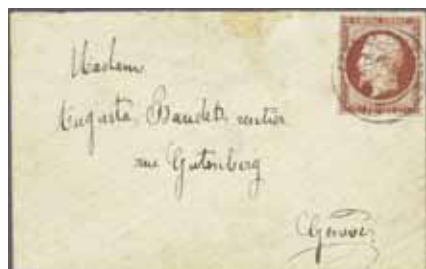 Madame
Augusta Baudet, rentier
rue Gutenberg
Genève